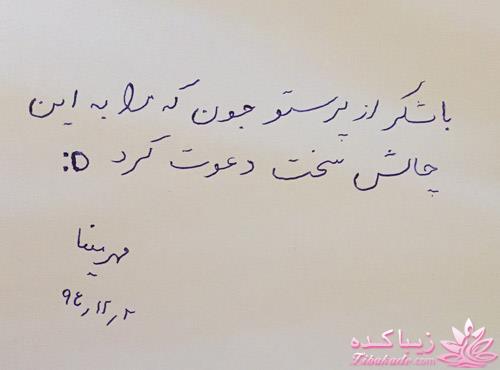 باشکر از پرستو جون که مرا به این
چالش سخت دعوت کرد :D
مهرسنا
۹۴٫۱۲٫۲
زیباکده
Zibakade.com